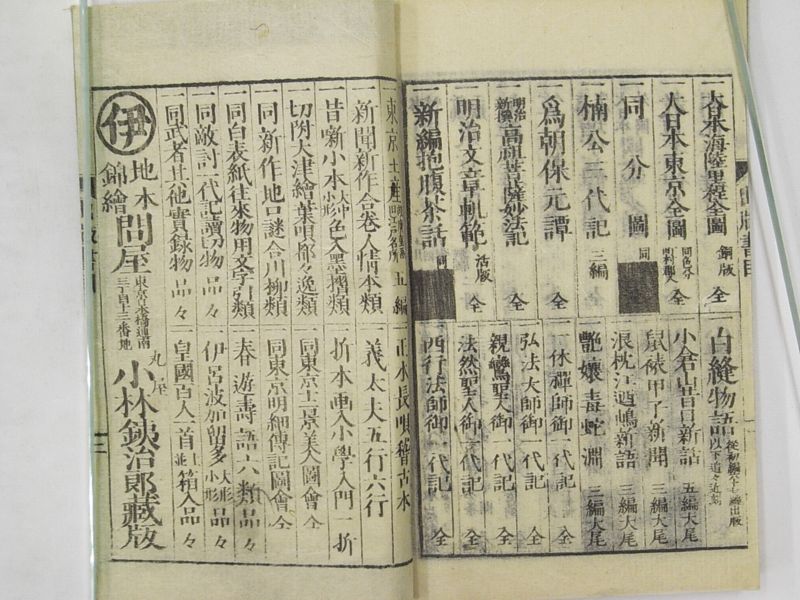 一大日本海陸里程全圖 銅版 全
一大日本東京全圖 全
一同分圖 同
一楠公三代記 三編
一爲朝保元譚 全
一明治新撰高祖菩薩妙法記 全
一明治文章軌範 活版 全
一新編抱腹茶話 同 全
白縫物語
一小倉山昔日新話 五編大尾
一鼠祿甲子新聞 三編大尾
一浪枕江遁嶋新語 三編大尾
一艶孃毒蛇淵 三編大尾
一一休禪師御一代記 全
一弘法大師御一代記 全
一親鸞聖人御一代記 全
一法然聖人御一代記 全
一西行法師御一代記 全
一東京土産 五編
一新聞新作合卷人情本類
一昔噺小本大中小形色入墨摺類
一切附大津繪葉唄都々逸類
一同新作地口謎合川柳類
一同白表紙往來物用文字引類
一同敵討一代記讀切物品々
一同武者其他實録物品々
一正本長唄稽古本
一義太夫五行六行
一折本画入小學入門一折
一同東京十二景美人圖會 全
一同東京明細傳記圖會 全
一春遊壽語六類品々
一伊呂波加留多大形小形品々
一皇國百人一首並箱入品々
伊
地本錦繪問屋
東京日本橋通南三丁目十三番地
丸屋 小林鉄治郎藏版